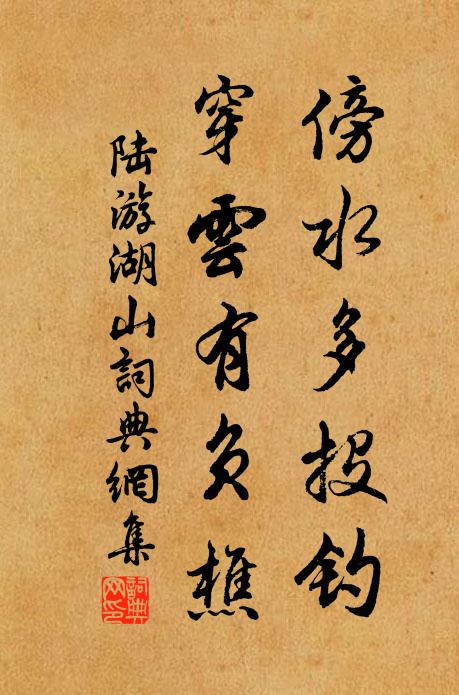 傍水多投钓
穿雲有负樵
陆游湖山詞典網集
詞典
网印